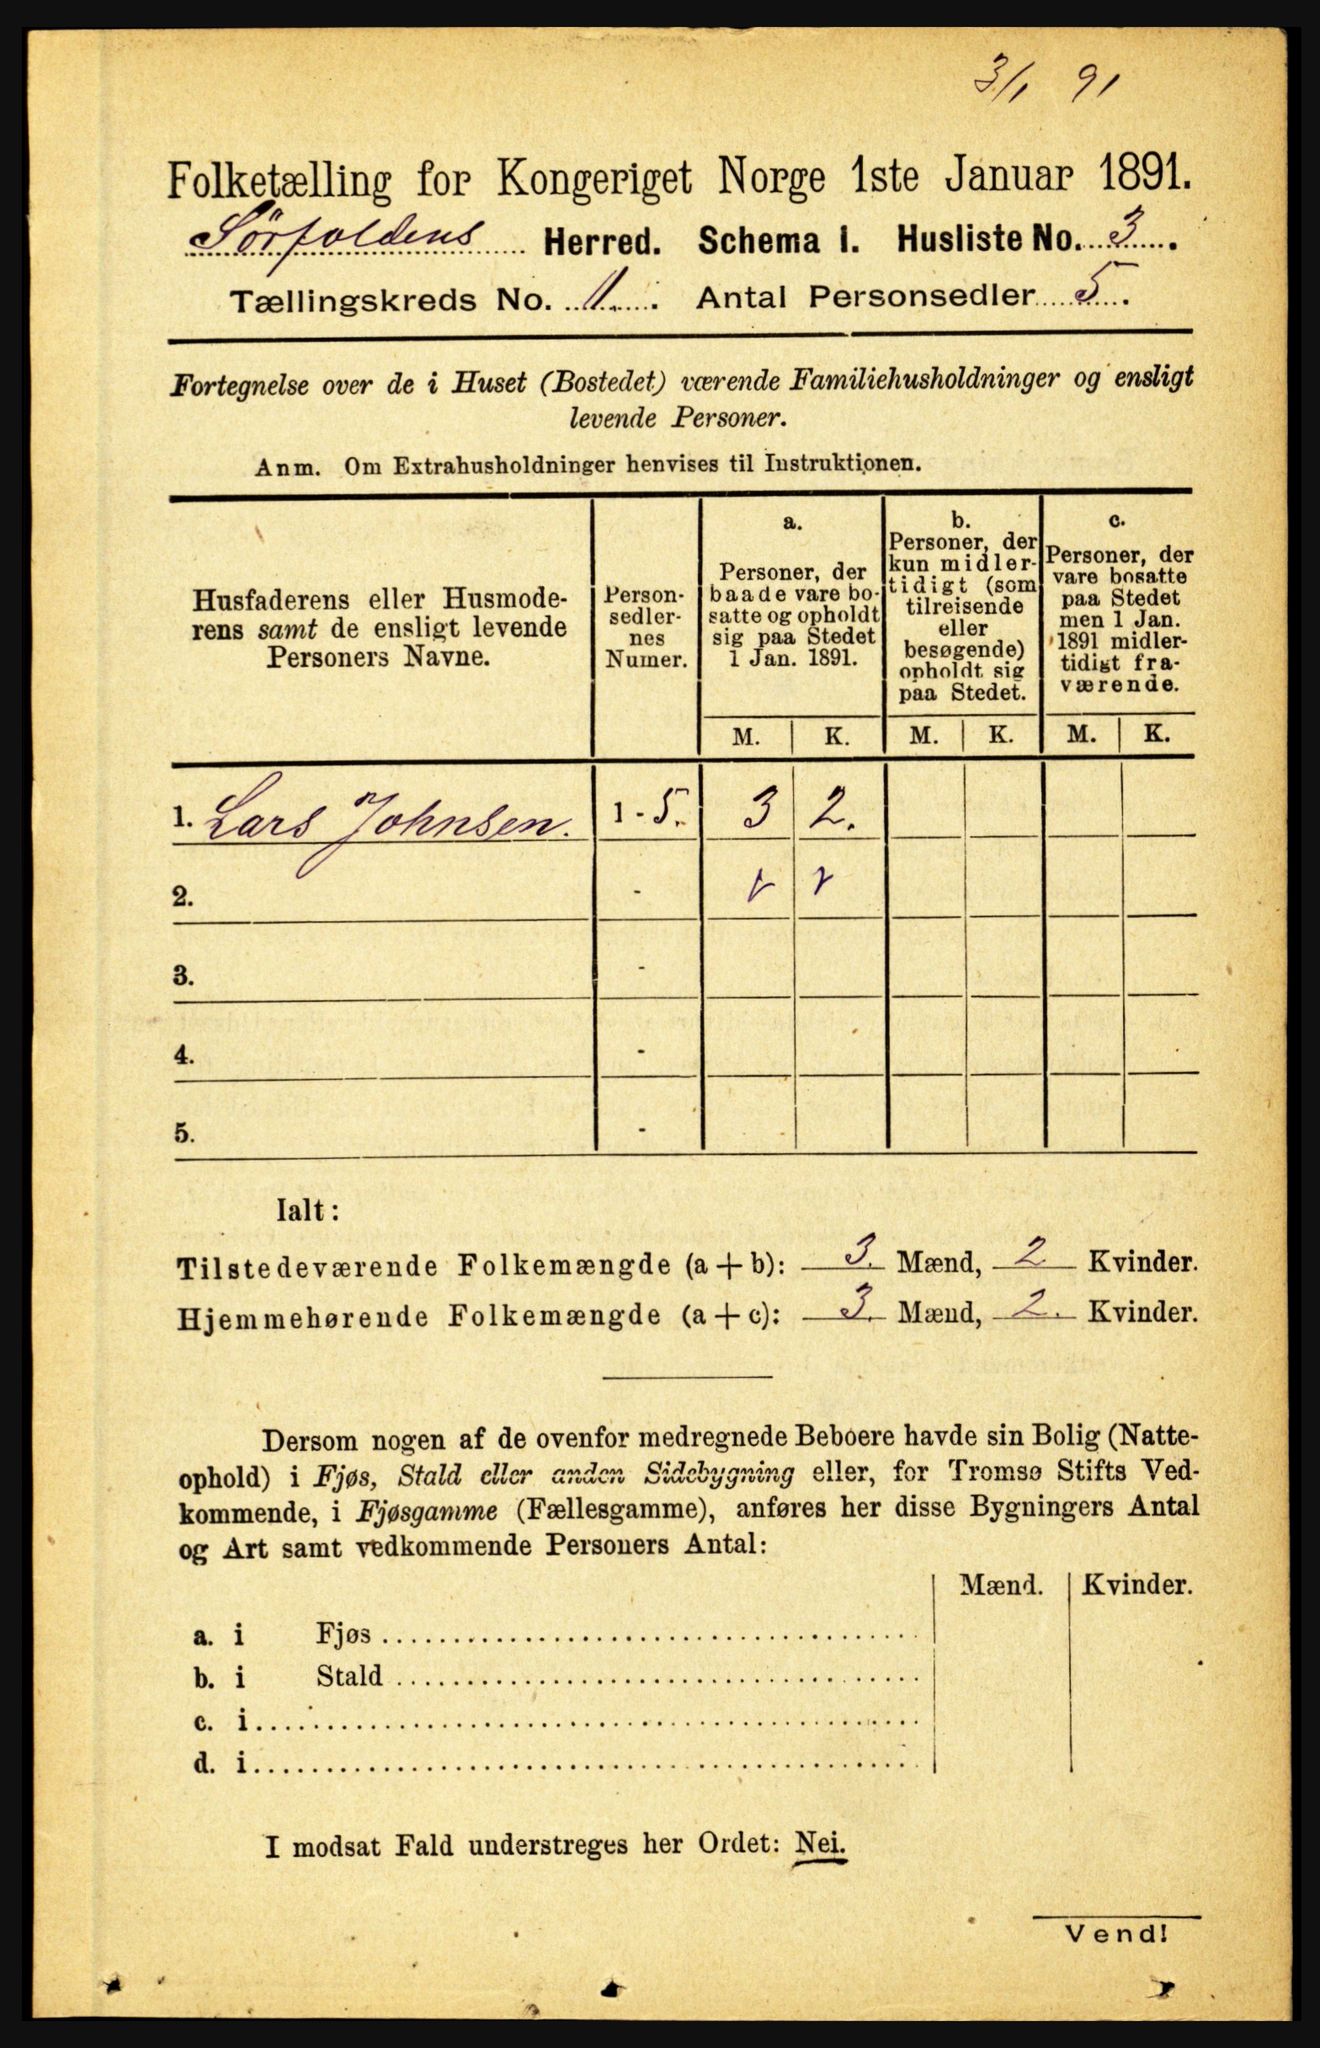 3/1 91
Folketælling for Kongeriget Norge 1ste Januar 1891.
Sörfoldens Herred. Schema I. Husliste No. 3.
Tællingskreds No. 1. Antal Personsedler 5.
Fortegnelse over de i Huset (Bostedet) værende Familiehusholdninger og ensligt
levende Personer.
Anm. Om Extrahusholdninger henvises til Instruktionen.
Husfaderens eller Husmode-
rens samt de ensligt levende
Personers Navne.
Person-
sedler-
nes
Numer.
a.
Personer, der
baade vare bo-
satte og opholdt
sig paa Stedet
1 Jan. 1891.
b.
Personer, der
kun midler-
tidigt (som
tilreisende
eller
besøgende)
opholdt sig
paa Stedet.
c.
Personer, der
vare bosatte
paa Stedet
men 1 Jan.
1891 midler-
tidigt fra-
værende.
M. K. M. K. M. K.
1. Lars Johnsen. 1 - 5. 3 2.
2. -
3. -
4. -
5. -
Ialt:
Tilstedeværende Folkemængde (a + b): 3. Mænd, 2 Kvinder.
Hjemmehørende Folkemængde (a + c): 3. Mænd, 2. Kvinder.
Dersom nogen af de ovenfor medregnede Beboere havde sin Bolig (Natte-
ophold) i Fjøs, Stald eller anden Sidebygning eller, for Tromsø Stifts Ved-
kommende, i Fjøsgamme (Fællesgamme), anføres her disse Bygningers Antal
og Art samt vedkommende Personers Antal:
Mænd. Kvinder.
a. i Fjøs
b. i Stald
c. i
d. i
I modsat Fald understreges her Ordet: Nei.
Vend!